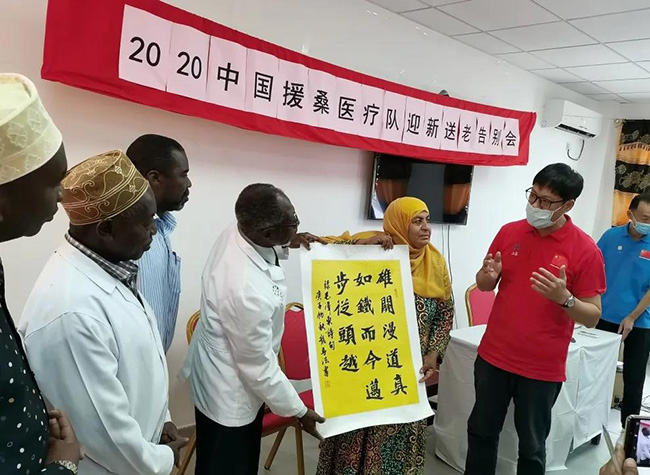 2020中国援桑医疗队迎新送老告别会
雄關漫道真
如鐵而今邁
步從頭越